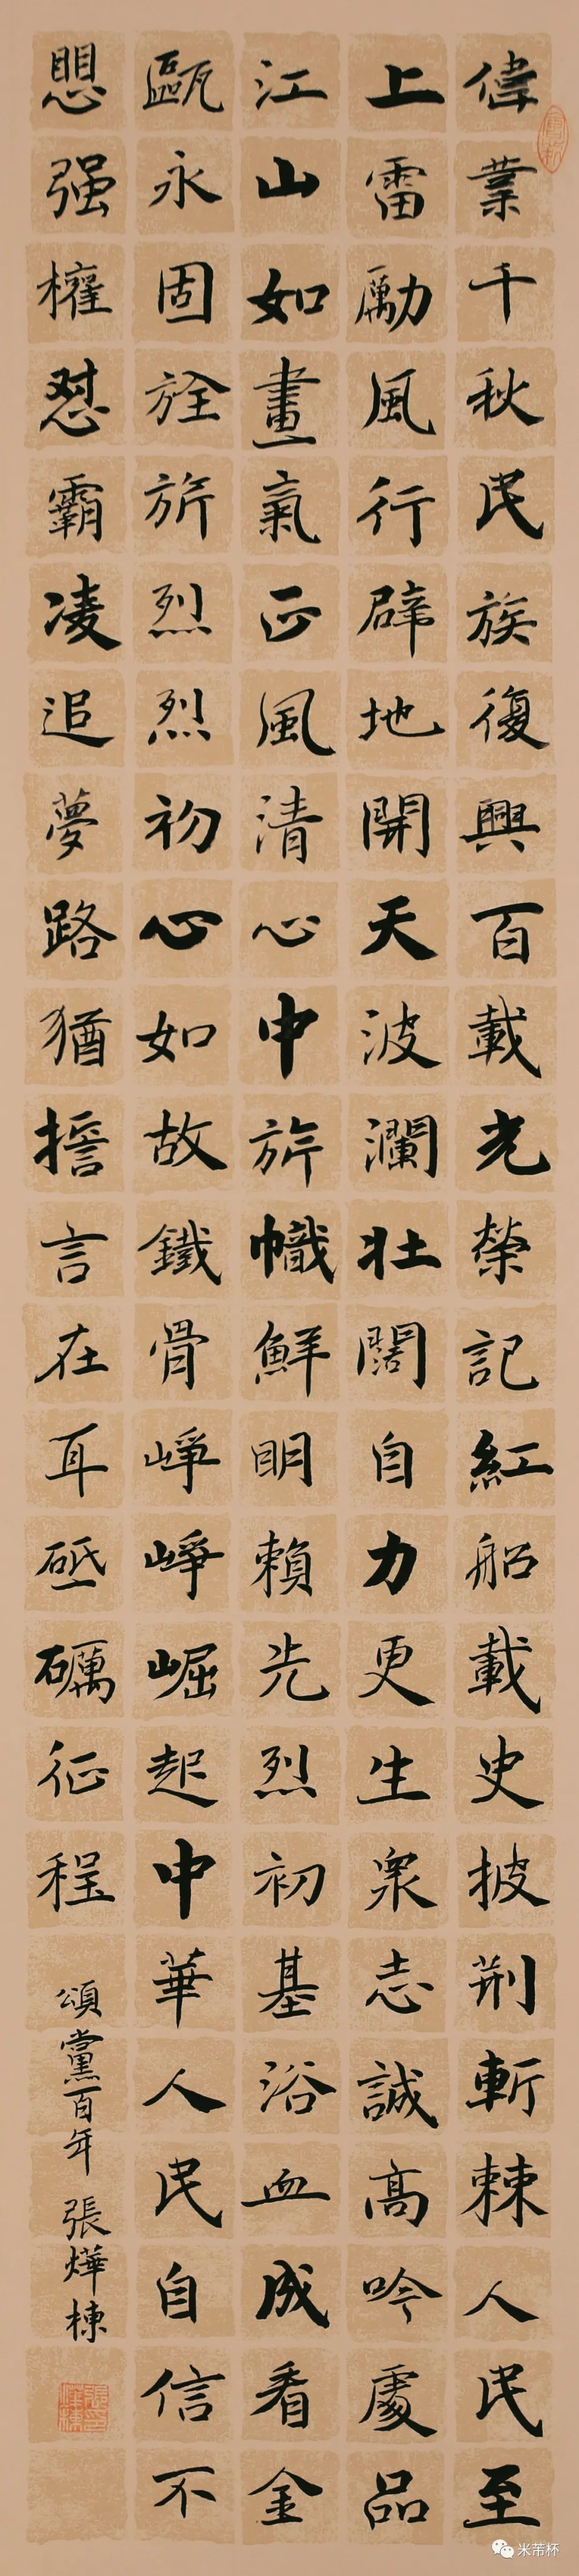 偉業千秋民族復興百載光榮記紅船載史披荆斬棘人民至
上雷勵風行辟地開天波瀾壯闊自力更生衆志誠高吟處品
江山如畫氣正風清心中旂幟鮮明賴先烈初基浴血成看金
甌永固旌旂烈烈初心如故鐵骨崢崢崛起中華人民自信不
愳强權懟霸凌追夢路猶擔言在耳砥礪征程
頌黨百年 張燁棟
張燁棟印
米芾杯